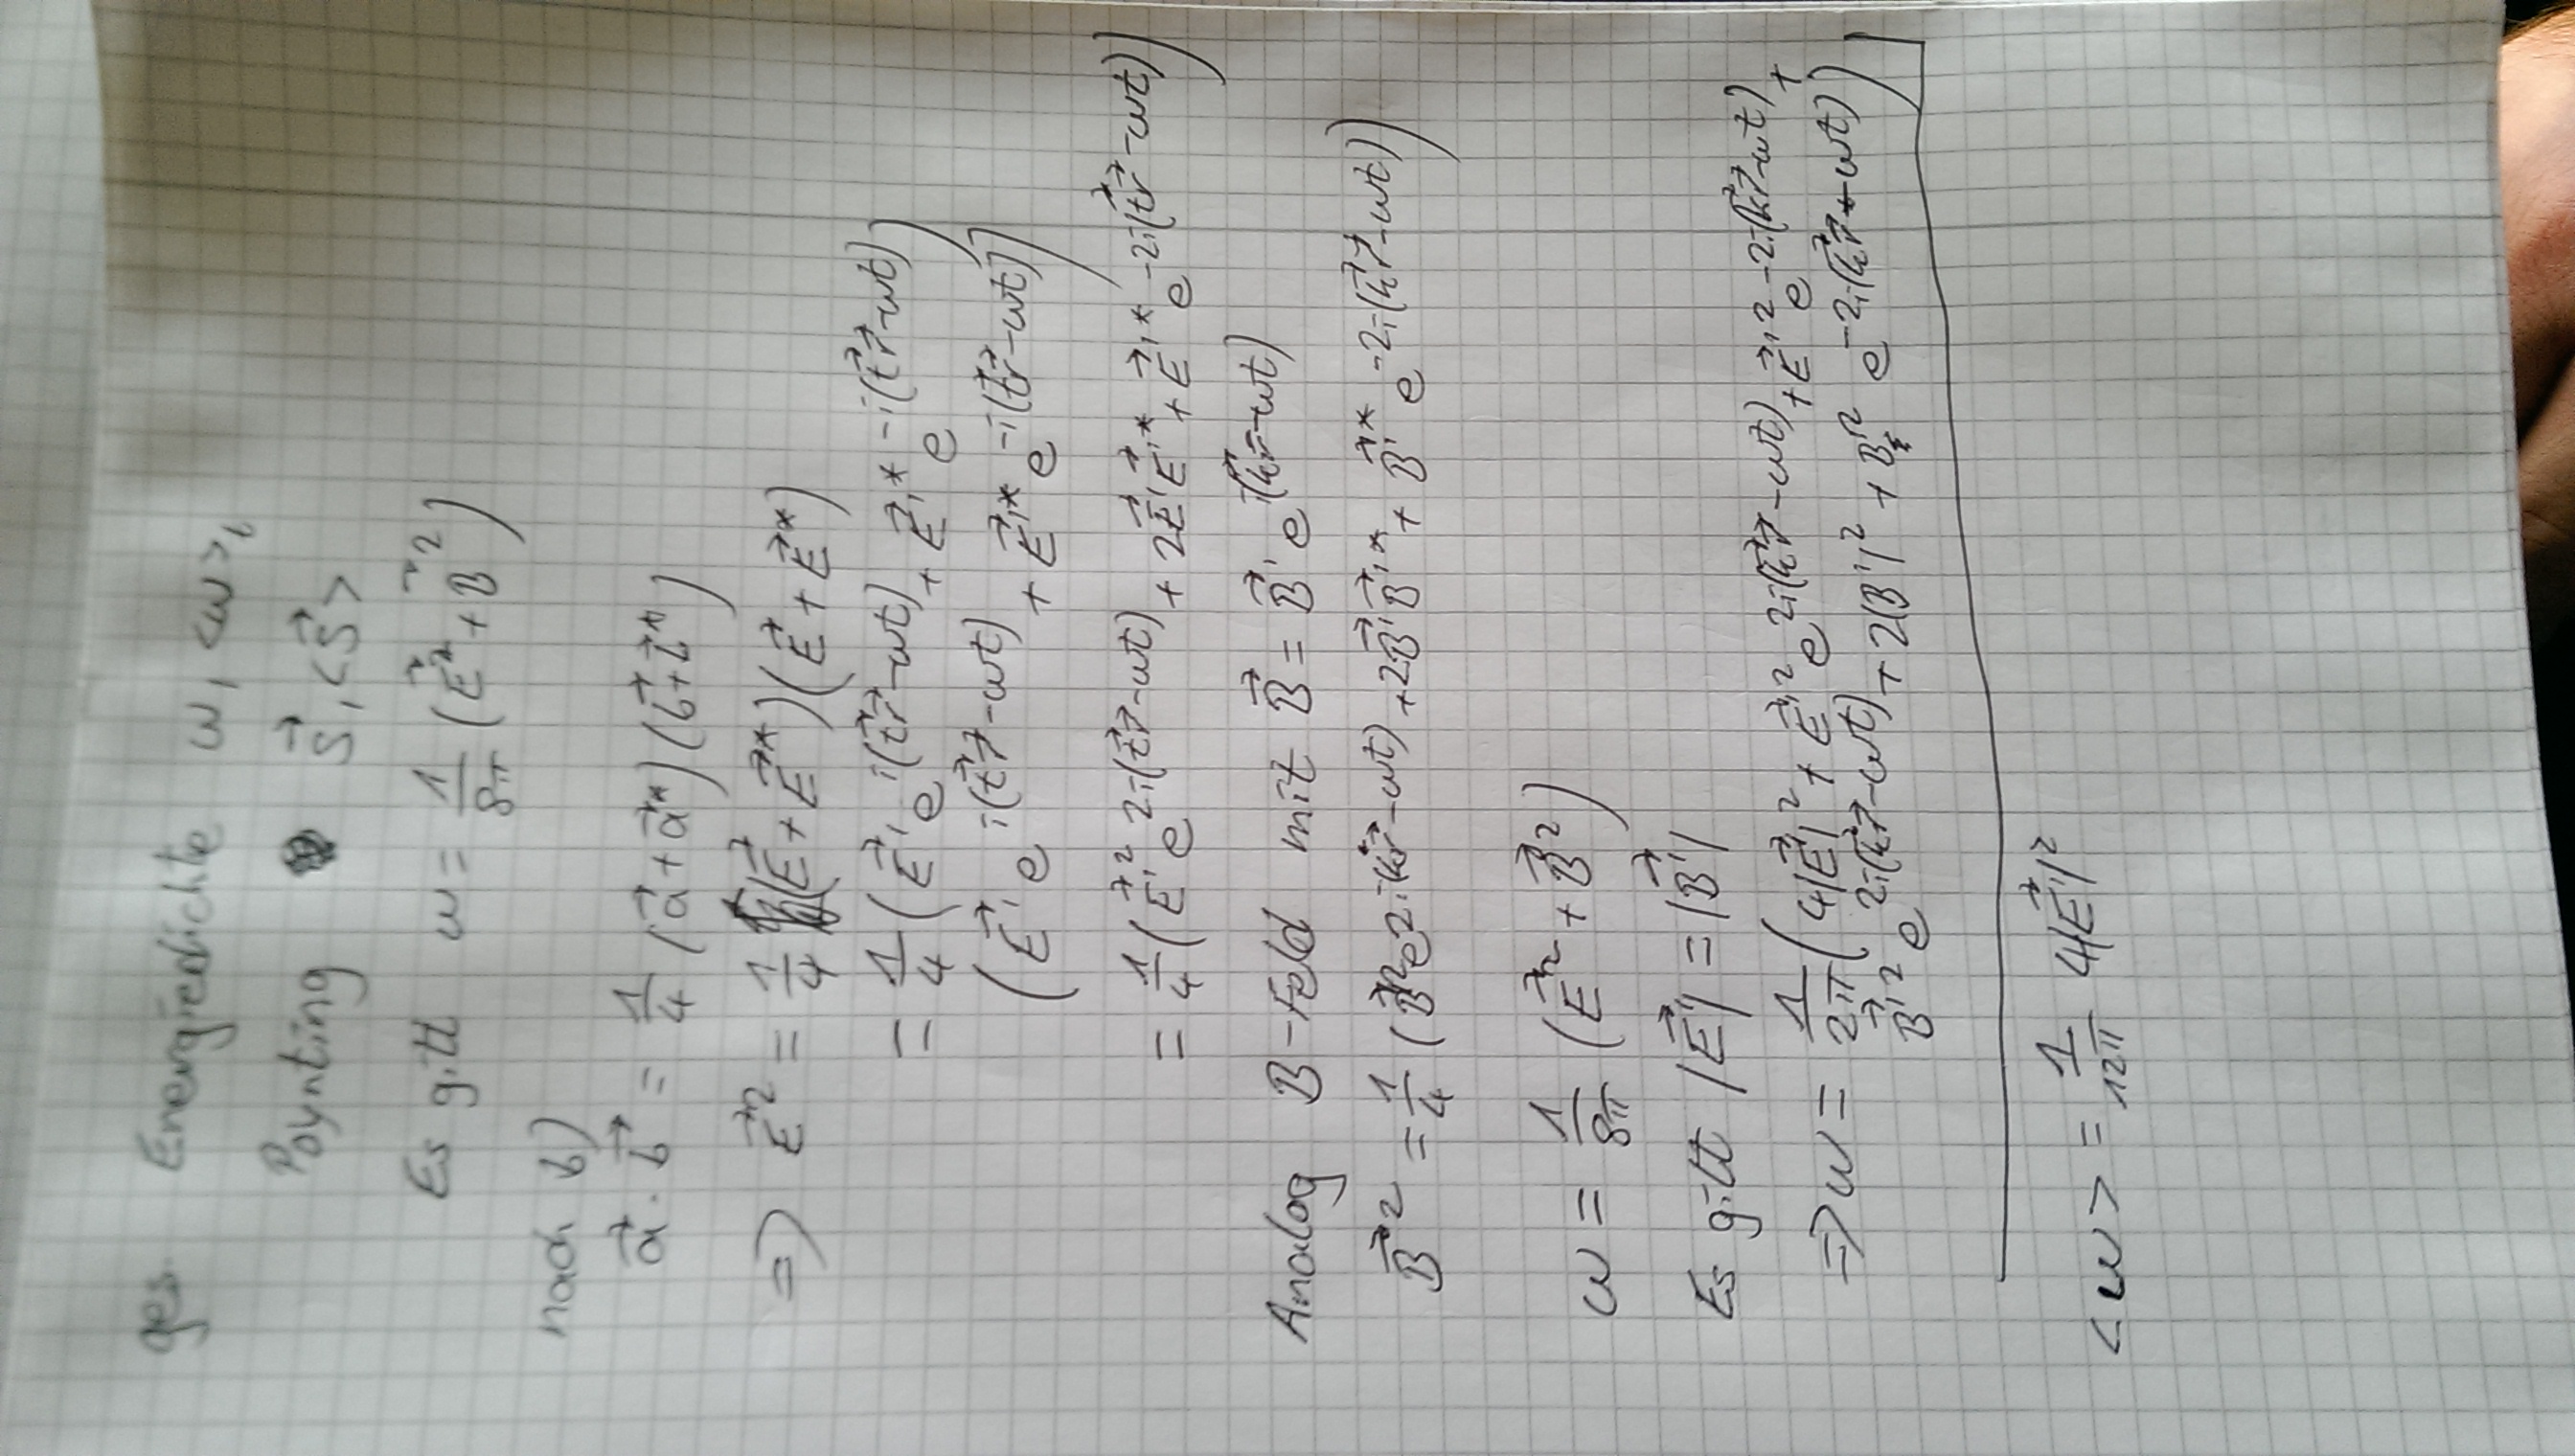 ges. Energiedichte w, <w>_t
Poynting S⃗, <S⃗>
Es gilt w = 1/8π (E⃗² + B⃗²)
nach b)
a⃗ · b⃗ = 1/4 (a⃗ + a⃗*) (b⃗ + b⃗*)
=> E⃗² = 1/4 (E⃗ + E⃗*) (E⃗ + E⃗*)
= 1/4 (E⃗' e^i(k⃗r⃗ - wt) + E⃗'* e^-i(k⃗r⃗ - wt))
(E⃗' e^i(k⃗r⃗ - wt) + E⃗'* e^-i(k⃗r⃗ - wt))
= 1/4 (E⃗'² e^2i(k⃗r⃗ - wt) + 2E⃗'E⃗'* + E⃗'* e^-2i(k⃗r⃗ - wt))
Analog B-Feld mit B⃗ = B⃗' e^i(k⃗r⃗ - wt)
B⃗² = 1/4 (B⃗'² e^2i(k⃗r⃗ - wt) + 2B⃗'B⃗'* + B⃗'* e^-2i(k⃗r⃗ - wt))
w = 1/8π (E⃗² + B⃗²)
Es gilt |E⃗'| = |B⃗'|
=> w = 1/2π (4|E⃗'|² + E⃗'² e^2i(k⃗r⃗ - wt) + E⃗'² e^-2i(k⃗r⃗ - wt) +
B⃗'² e^2i(k⃗r⃗ - wt) + 2|B'|² + B'² e^-2i(k⃗r⃗ - wt))
<w> = 1/12π 4|E⃗'|²